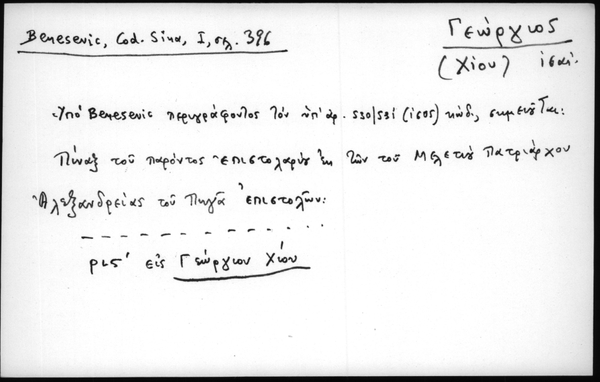 Benesevic, Cod. Sina, I, σελ. 396
Γεώργιος
(Χίου)
Ὑπό Benesevic περιγράφοντος τόν ὑπ' ἀρ. 530/531 (1605) κώδ., σημειοῦται:
Πίναξ τοῦ παρόντος ἐπιστολαρίου ἐκ τῶν τοῦ Μελετίου Πατριάρχου
Ἀλεξανδρείας τοῦ Πηγᾶ ἐπιστολῶν:
ρις' εἰς Γεώργιον Χίου